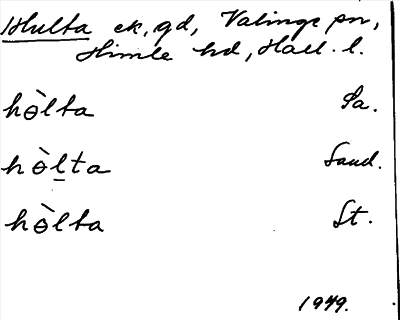 Hulta ek, gd, Valinge sn,
Himle hd, Hall. l.
hɵ̀lta Sa.
hɵ̀l̠ta Sand.
hɵ̀lta St.
1949.